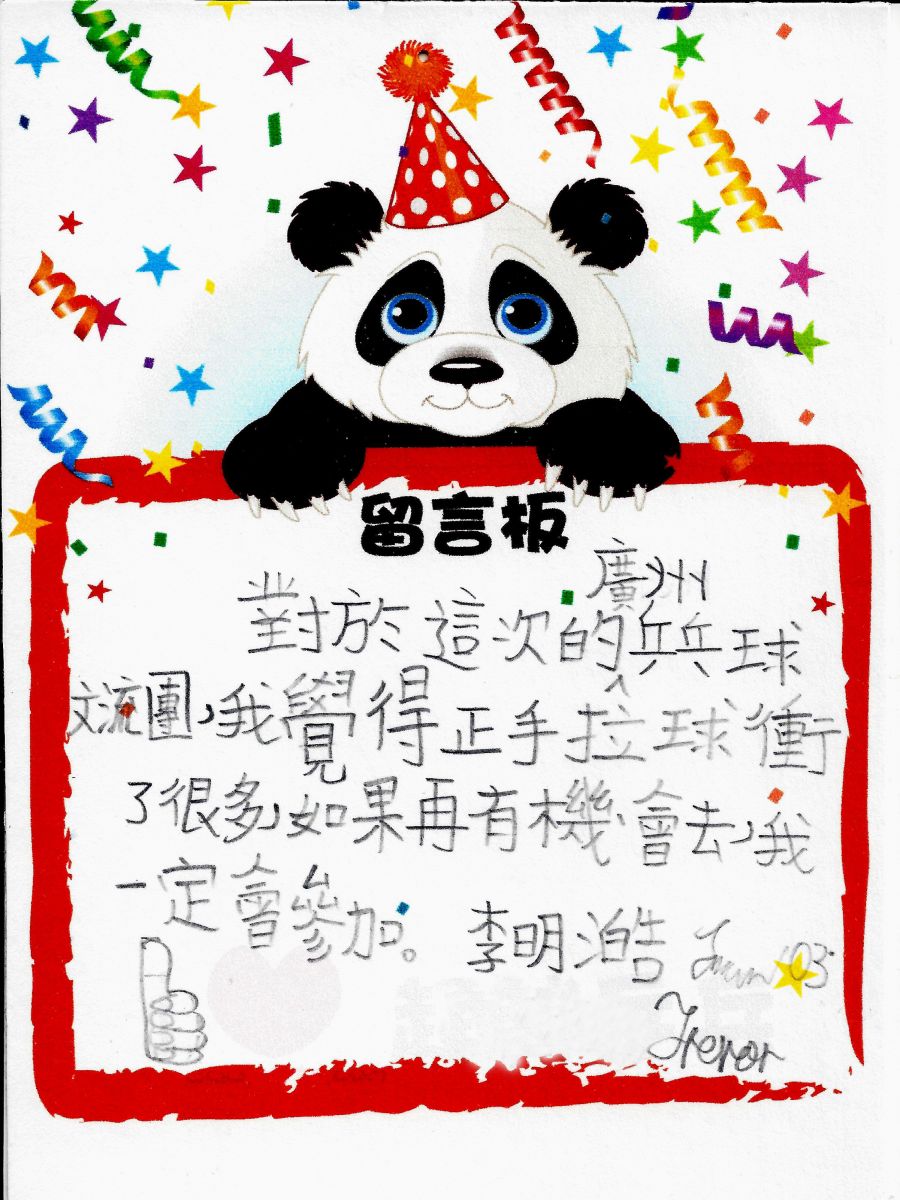 留言板
廣州
對於這次的乒乓球
交流團,我覺得正手拉球衝
了很多,如果再有機會去,我
一定會參加。 李明澔
Trevor